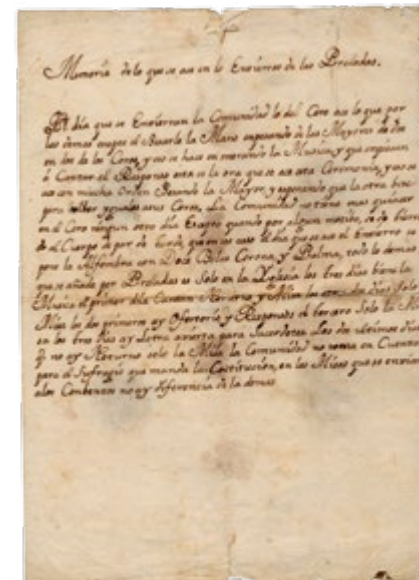 Memoria de lo que se ace en lo Entierros de las Preladas.
El dia que se Entierran la Comunidad lo del Coro ace lo que por
las demas excepto el Besarle la Mano empezando de las Mayores de dos
en dos de los Coros, y eso se hace en entrando la Musica, y que empiecen
á Cantar el Responso esta es la ora que se ace esta Ceremonia, y eso se
ace con mucha Orden Besando la Mayor, y esperando que la otra bese
para bolber yguales a sus Coros, La Comunidad no tiene mas que acer
en el Coro ningun otro dia Excepto quando por algun motibo, se da tierra
á el Cuerpo
que en ese caso el dia que se ace el Entierro se
pone la Alfombra con Doce Belas Corona, y Palma, todo lo demas
que se añade por Preladas es Solo en la Yglesia los tres dias biene la
Musica el primer dia Cantan Nocturno y Misa los otros dos dias Solo
Misa los dos primeros ay Ofertorio y Responso el tercero Solo la Misa
en los tres dias ay Letra avierta para Sacerdotes Los dos ultimos dias
q no ay Nocturno solo la Misa la Comunidad no entra en Cuenta
para el Sufragio que manda la Costitucion, en las Misas que se envian
a los Conbentos no ay diferencia de la demas